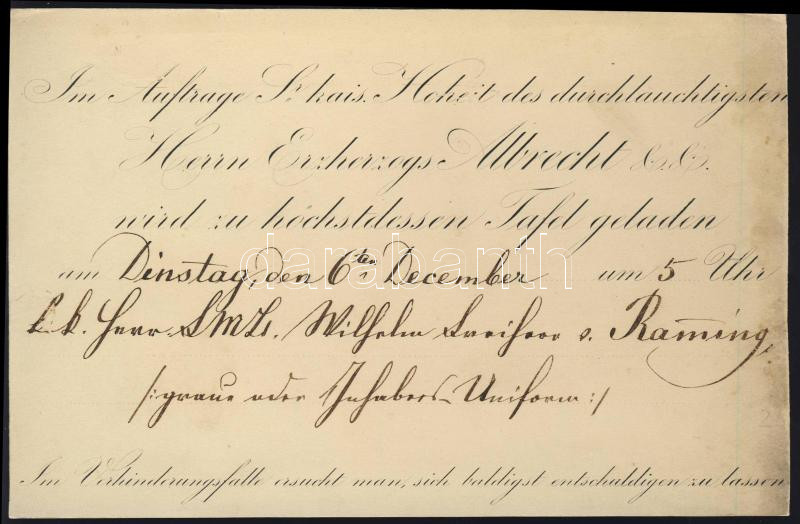 Im Auftrage Sr. kais. Hoheit des durchlauchtigsten
Herrn Erzherzogs Albrecht &.&.
wird zu höchstdessen Tafel geladen
am Dinstag, den 6ten December um 5 Uhr
k. k. Herr FMLt. Wilhelm Freiherr v. Raming,
/: graue oder Inhabers-Uniform :/
Im Verhinderungsfalle ersucht man, sich baldigst entschuldigen zu lassen
darabanth